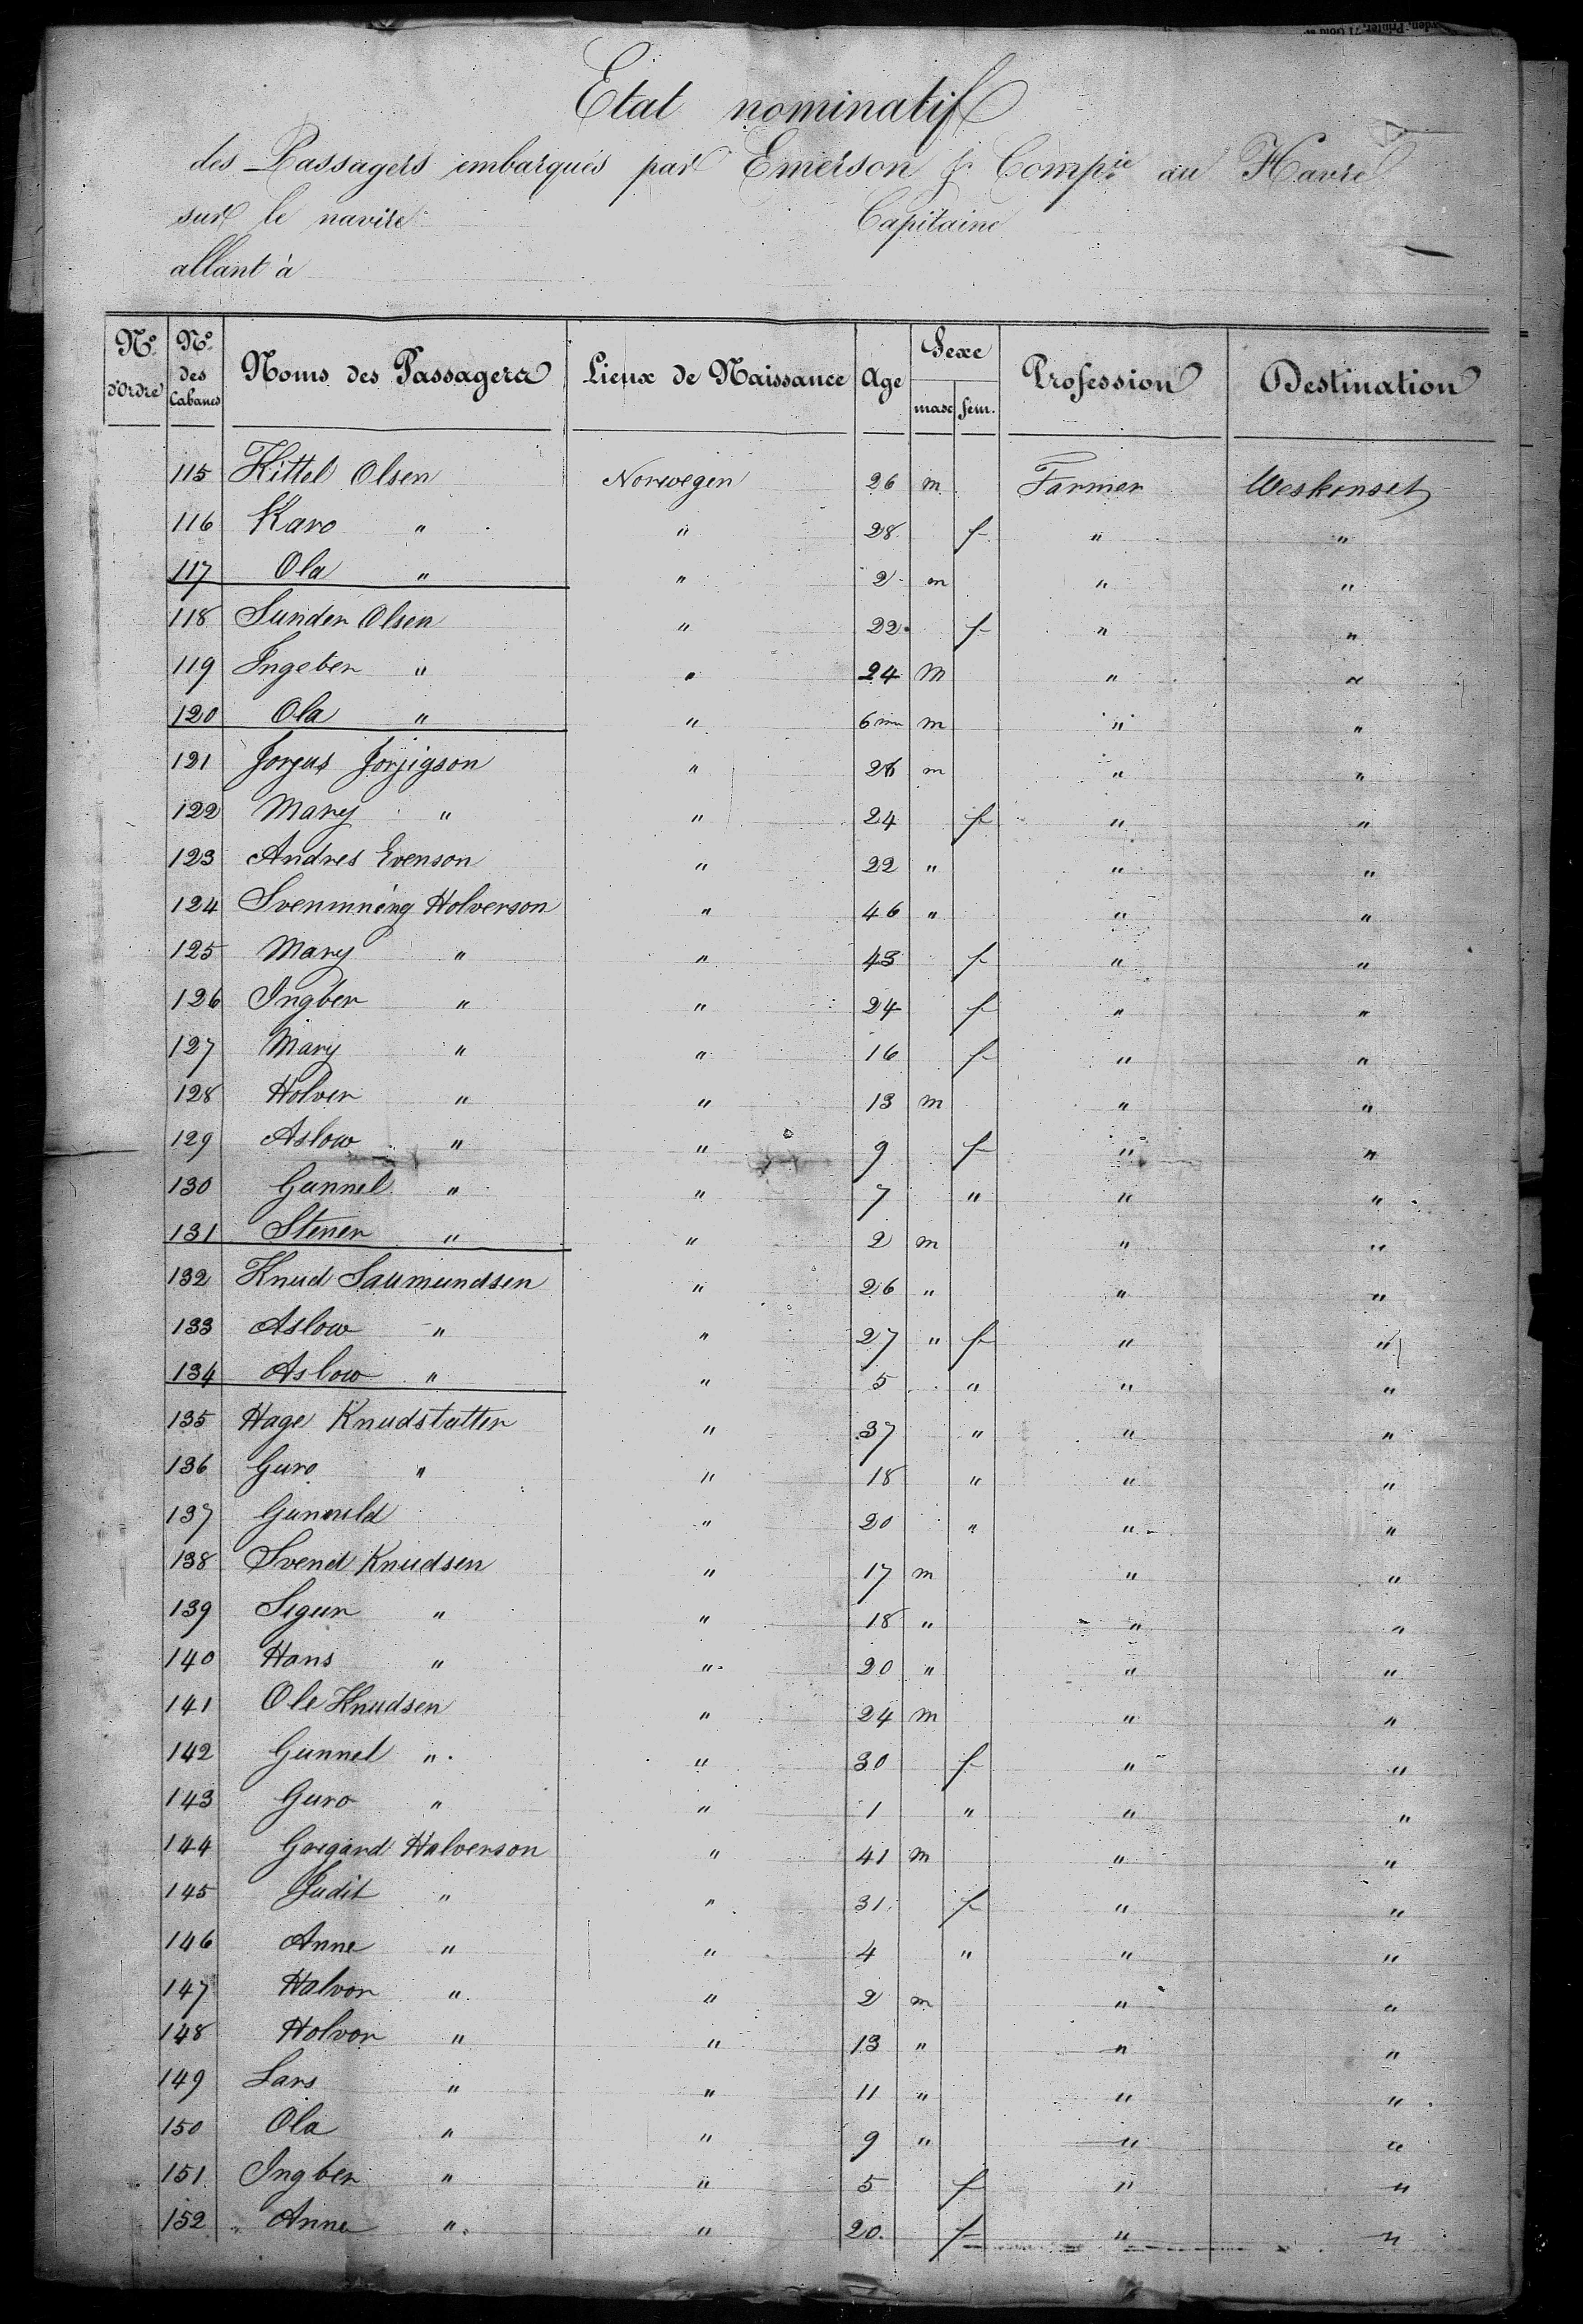 Etat nominatif
des Passagers embarqués par Emerson & Comp.ie au Havre
sur le navire Capitaine
allant à
Nº d'Ordre Nº des Cabanes Noms des Passagers Lieux de Naissance Age Sexe masc fem. Profession Destination
115 Kittel Olsen Norwegen 26 m Farmer Weskonset
116 Karo " " 28 f " "
117 Ola " " 2 m " "
118 Sunder Olsen " 22 f " "
119 Ingeber " " 24 m " "
120 Ola " " 6 mn m " "
121 Jorgus Jorjigson " 26 m " "
122 Mary " " 24 f " "
123 Andres Evenson " 22 " " "
124 Svennning Holverson " 46 " " "
125 Mary " " 43 f " "
126 Ingber " " 24 f " "
127 Mary " " 16 f " "
128 Holver " " 13 m " "
129 Aslow " " 9 f " "
130 Gunnel " " 7 " " "
131 Stener " " 2 m " "
132 Knud Saumundsen " 26 " " "
133 Aslow " " 27 " f " "
134 Aslow " " 5 " " "
135 Hage Knudstatter " 37 " " "
136 Guro " " 18 " " "
137 Gunuld " 20 " " "
138 Svend Knudsen " 17 m " "
139 Sigur " " 18 " " "
140 Hans " " 20 " " "
141 Ole Knudsen " 24 m " "
142 Gunnel " " 30 f " "
143 Guro " " 1 " " "
144 Gregard Halverson " 41 m " "
145 Judit " " 31 f " "
146 Anne " " 4 " " "
147 Halvor " " 2 m " "
148 Holvor " " 13 " " "
149 Lars " " 11 " " "
150 Ola " " 9 " " "
151 Ingber " " 5 f " "
152 Anne " " 20 f " "